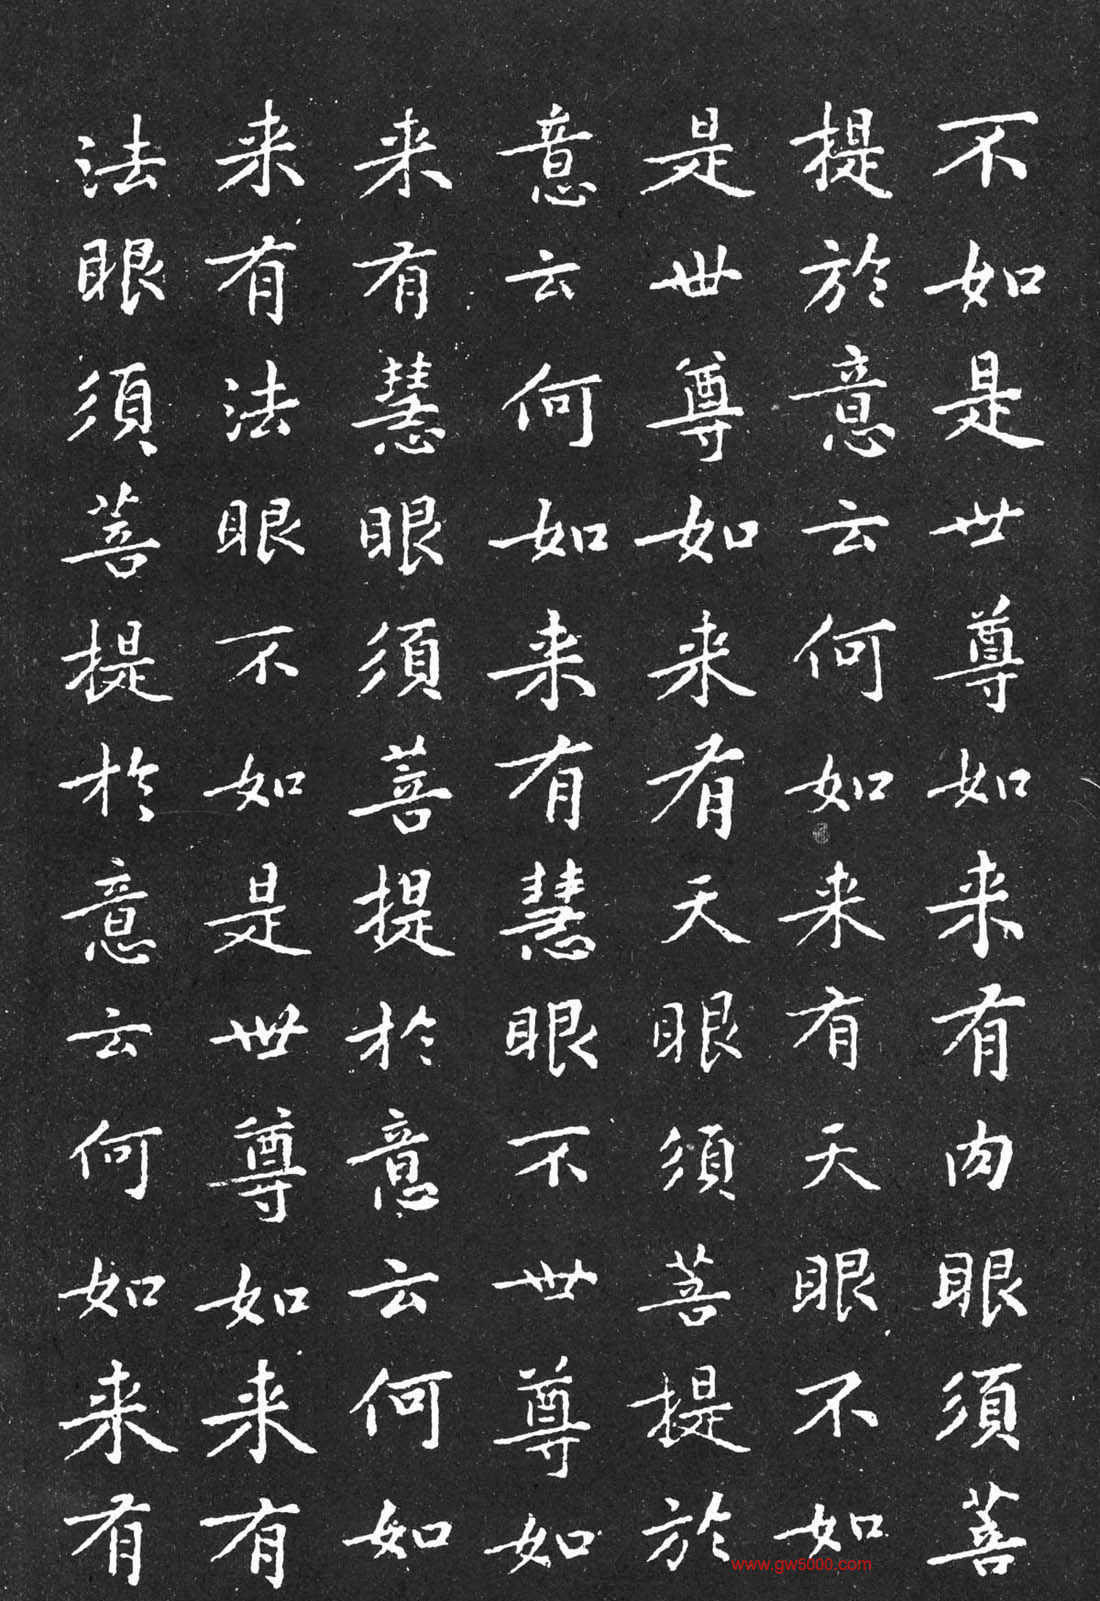 不如是世尊如来有肉眼須菩
提於意云何如来有天眼不如
是世尊如来有天眼須菩提於
意云何如来有慧眼不世尊如
来有慧眼須菩提於意云何如
来有法眼不如是世尊如来有
法眼須菩提於意云何如来有
www.gw5000.com